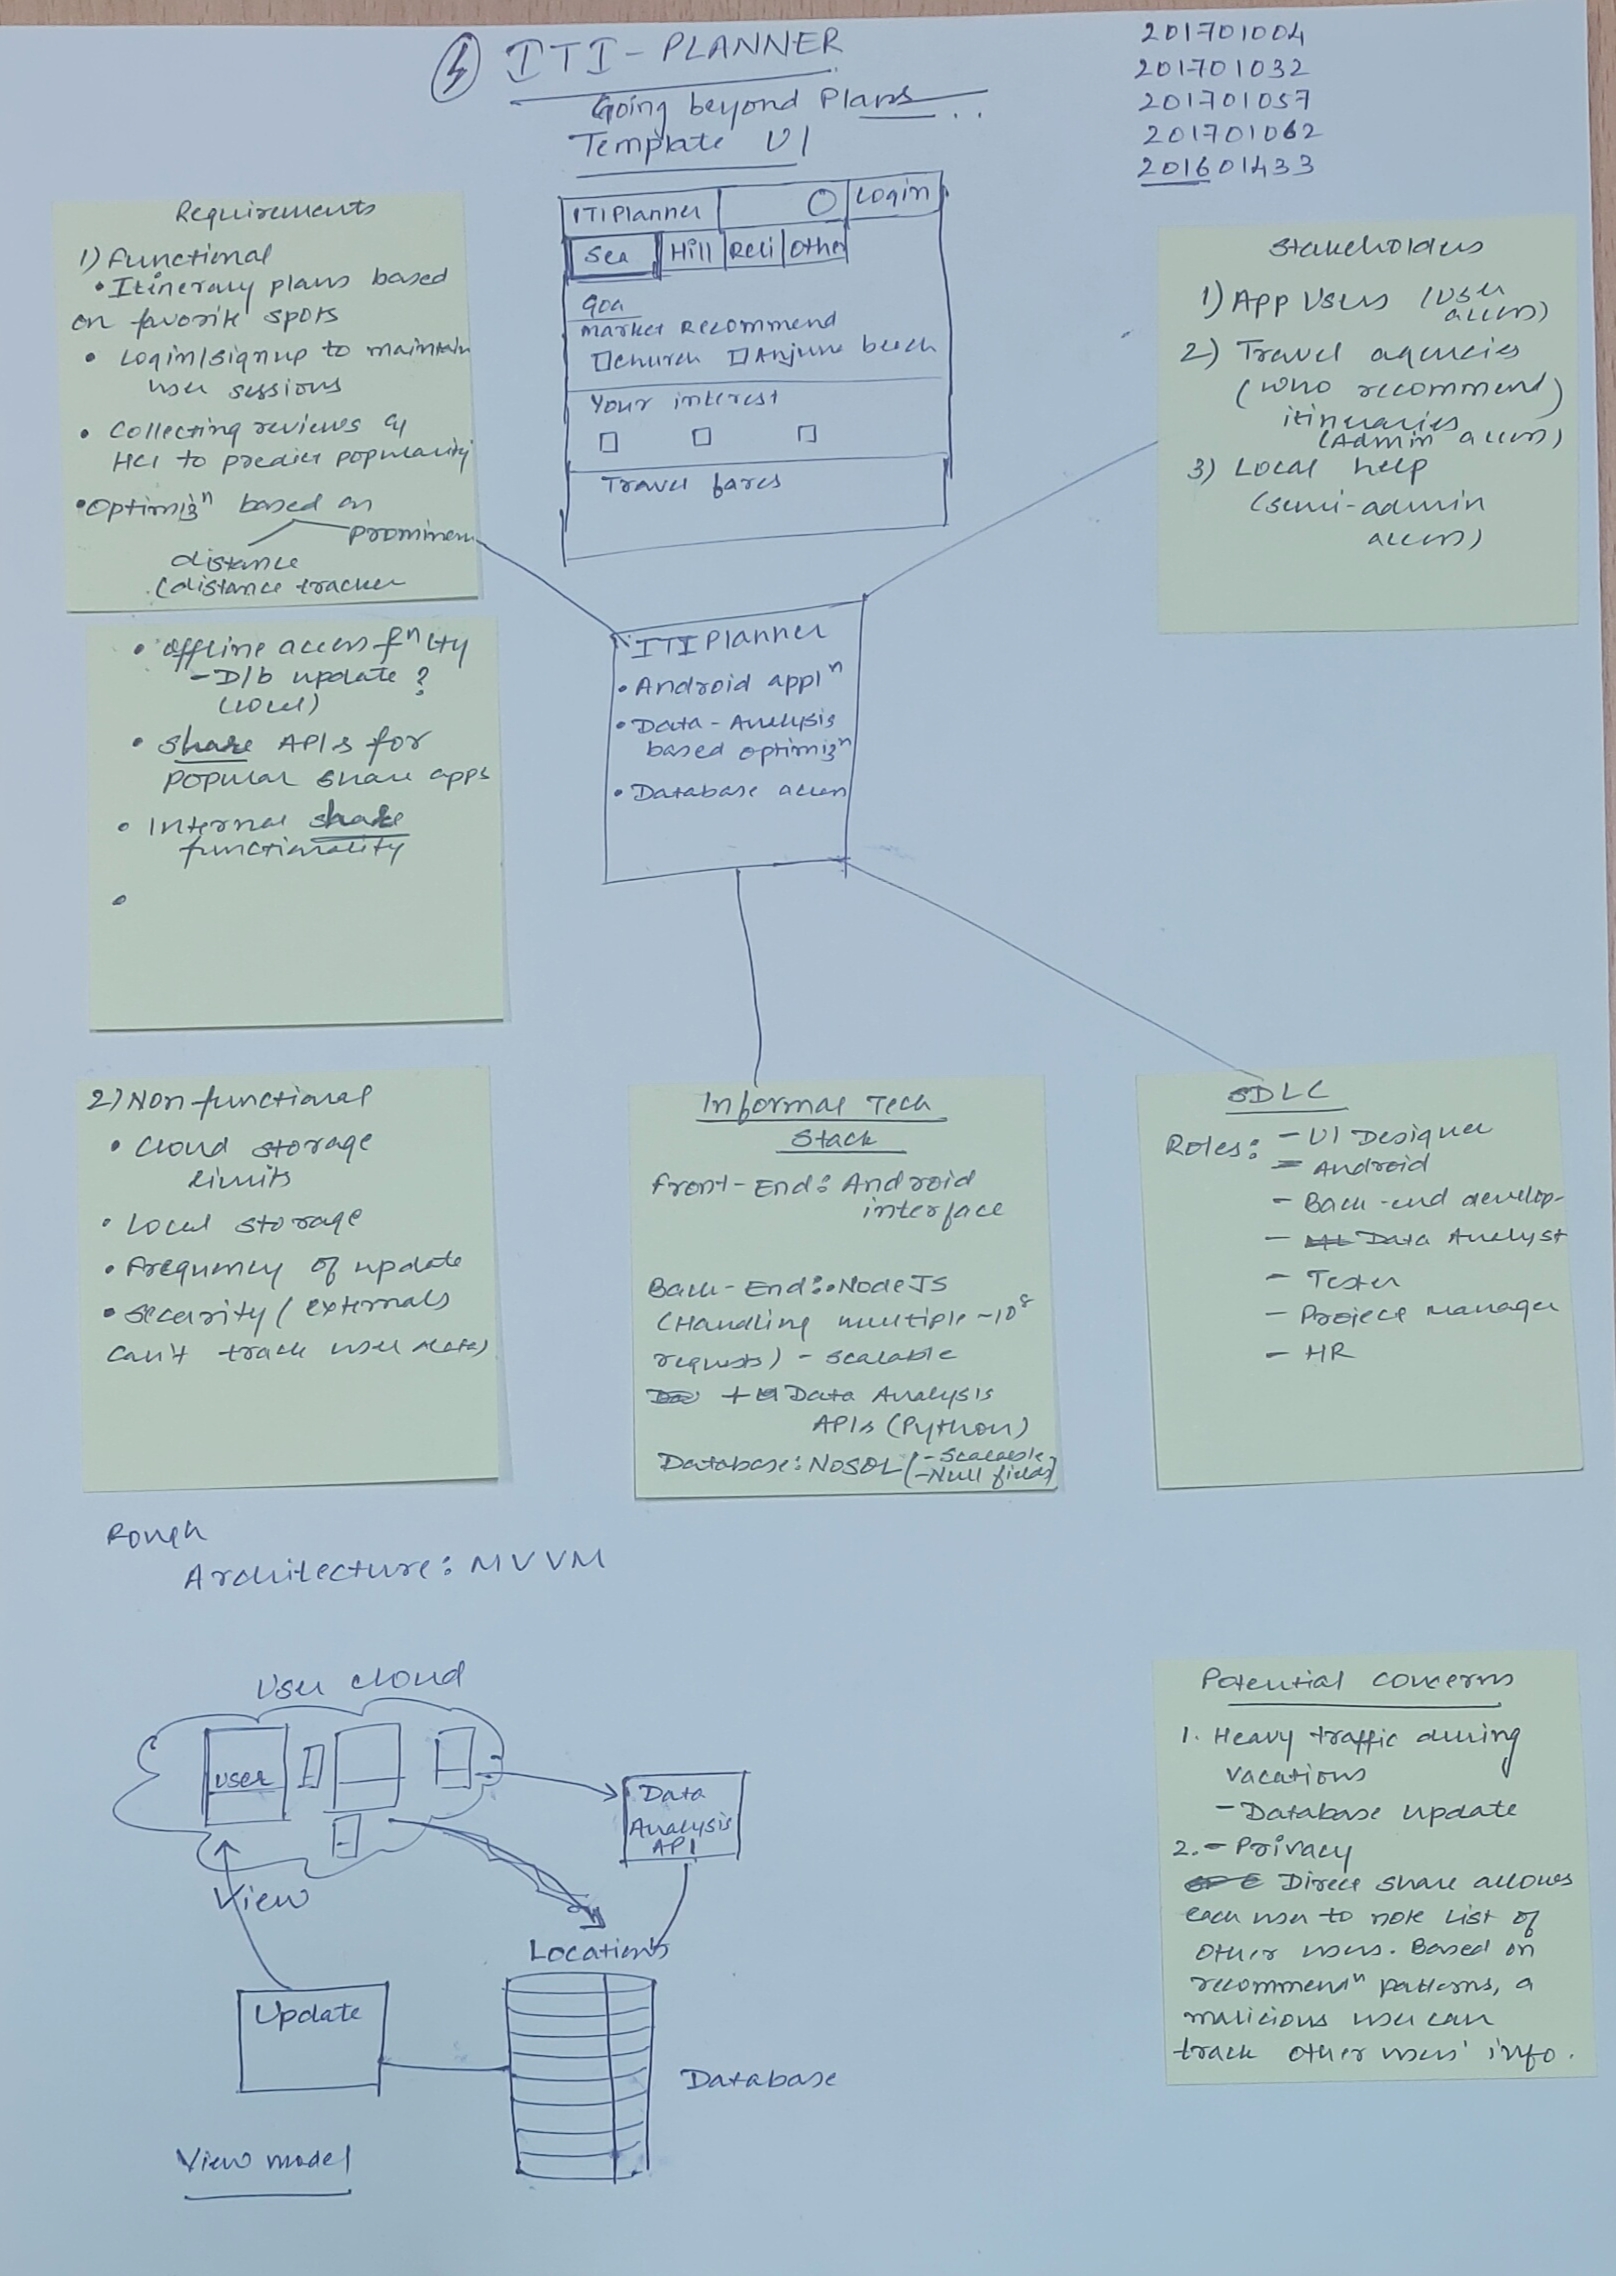 ITI-PLANNER
Going beyond Plans ..
Template UI
201701004
201701032
201701057
201701062
201601433
ITIPlanner
Login
Sea
Hill
Reli
Other
Goa
Market Recommend
Church
Anjuna beach
Your interest
Travel fares
Requirements
1) Functional
• Itinerary plans based
on favorite spots
• Login/signup to maintain
user sessions
• Collecting reviews by
HCI to predict popularity
• Optimizⁿ based on
prominen
distance
(distance tracker
• Offline access fⁿlty
- D/b update?
(local)
• Share APIs for
popular share apps
• Internal share
functionality
•
2) Non functional
• Cloud storage
limits
• Local storage
• Frequency of update
• Security (externals
can't track user data)
Stakeholders
1) App Users (user
access)
2) Travel agencies
(who recommend)
itineraries
(Admin access)
3) Local help
(semi-admin
access)
ITIPlanner
• Android applⁿ
• Data-Analysis
based optimizⁿ
• Database access
Informal Tech
Stack
Front-End: Android
interface
Back-End: • NodeJS
(Handling multiple ~10⁸
requests) - scalable
+ Data Analysis
APIs (Python)
Database: NoSQL (-Scalable
-Null fields)
SDLC
Roles: - UI Designer
- Android
- Back-end develop-
- ML Data Analyst
- Tester
- Project manager
- HR
Rough
Architecture: MVVM
User cloud
User
View
Data
Analysis
API
Locations
Update
Database
View model
Potential concerns
1. Heavy traffic during
vacations
- Database update
2. - Privacy
Direct share allows
each user to note list of
other users. Based on
recommendⁿ patterns, a
malicious user can
track other users' info.